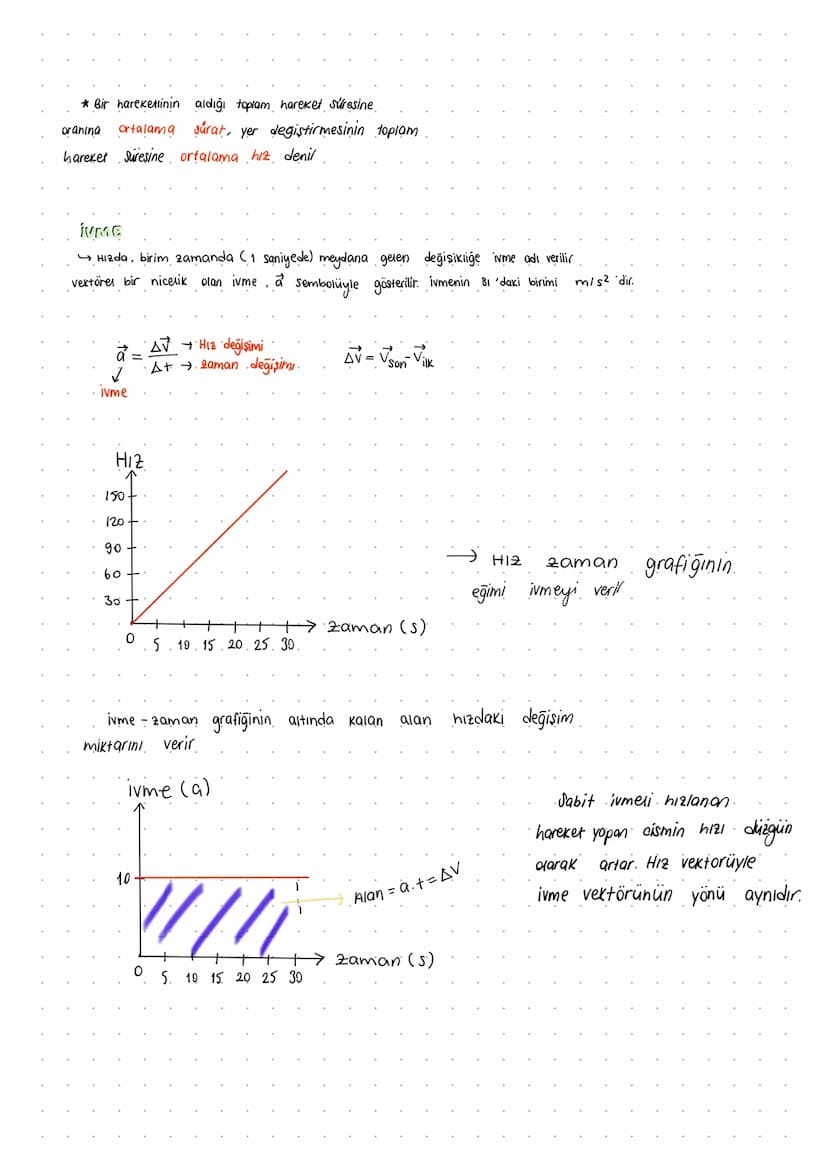 * Bir hareketlinin aldığı toplam hareket süresine
oranına ortalama sürat, yer degistirmesinin toplam
hareket süresine ortalama hız denir
İVME
↳ Hızda, birim zamanda (1 saniyede) meydana gelen değişikliğe ivme adı verilir
vektörel bir nicelik olan ivme, a⃗ sembolüyle gösterilir. ivmenin SI 'daki birimi m/s² 'dir.
a⃗ = ΔV⃗ → Hız değişimi
Δt → zaman değişimi
ΔV⃗ = V⃗son - V⃗ilk
ivme
Hız
150
120
90
60
30
0 5 10 15 20 25 30
zaman (s)
→ Hız zaman grafiğinin
eğimi ivmeyi verir
ivme - zaman grafiğinin altında kalan alan hızdaki değişim
miktarını verir
ivme (a)
10
Alan = a.t = ΔV
0 5 10 15 20 25 30
zaman (s)
Sabit ivmeli hızlanan
hareket yapan cismin hızı düzgün
olarak artar. Hız vektorüyle
ivme vektörünün yönü aynıdır.